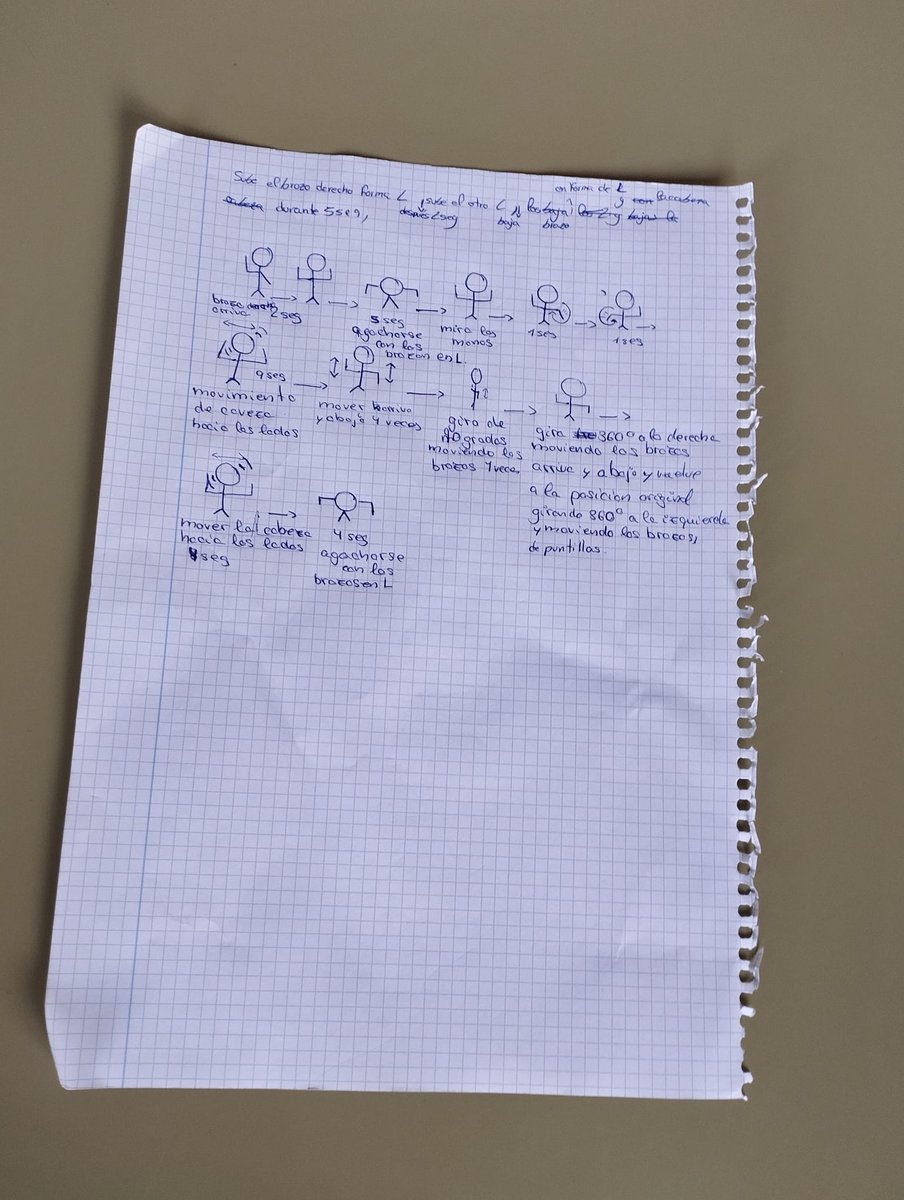 en forma de L
Sube el brazo derecho forma L, sube el otro L y
durante 5seg, baja brazo
brazo
arriva 2seg
5 seg
agacharse
con los
brazon en L.
mira las
manos
1seg
1seg
9seg
movimiento
de caveza
hacia los lados
mover
y abajo 4 veces
gira de
grados
moviendo los
brazos 1 vece
gira 360° a la derecha
moviendo los brazos
arriva y abajo y vuelve
a la posicion original
girando 360° a la izquierda
y moviendo los brazos,
de puntillas.
mover la cabeza
hacia los lados
seg
4 seg
agacharse
con los
brazos en L